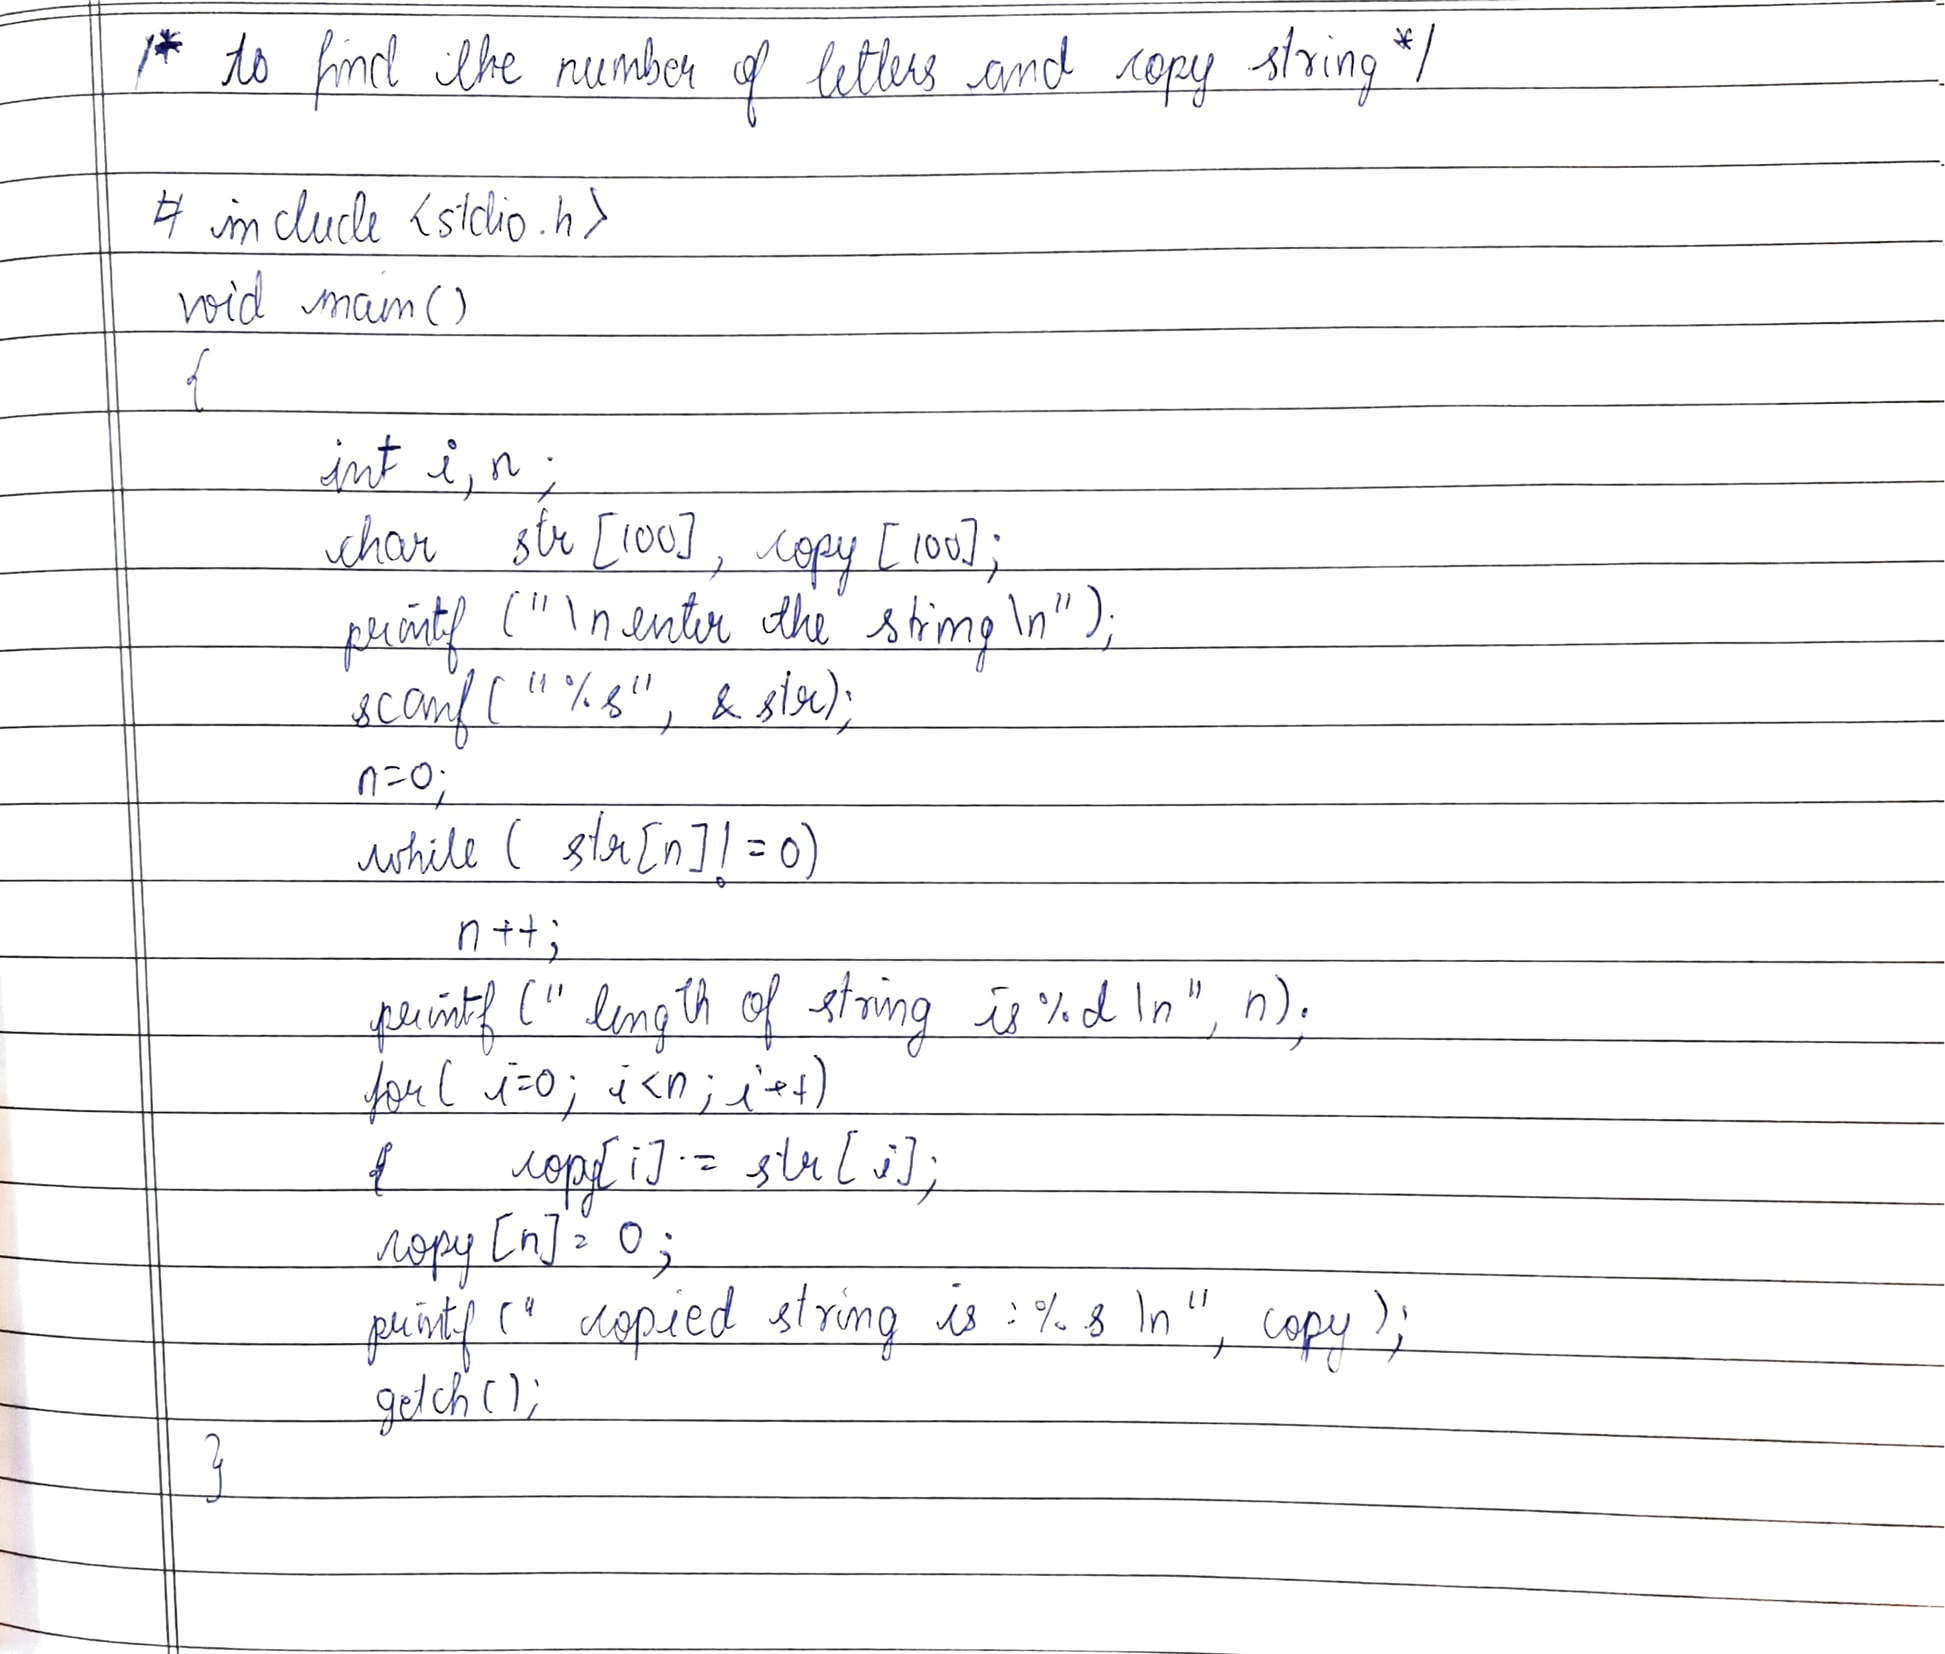 /* to find the number of letters and copy string */
# include <stdio.h>
void main()
{
int i, n;
char str [100], copy [100];
printf ("\n enter the string \n");
scanf ("%s", & str);
n=0;
while ( str[n] != 0)
n++;
printf (" length of string is %d \n", n);
for( i=0; i<n; i++)
copy[i] = str[i];
copy [n] = 0;
printf (" copied string is : %s \n", copy );
getch();
}